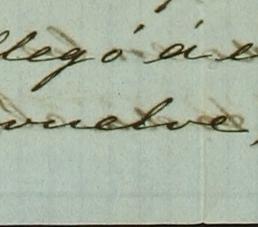 llegó á e
vuelve,